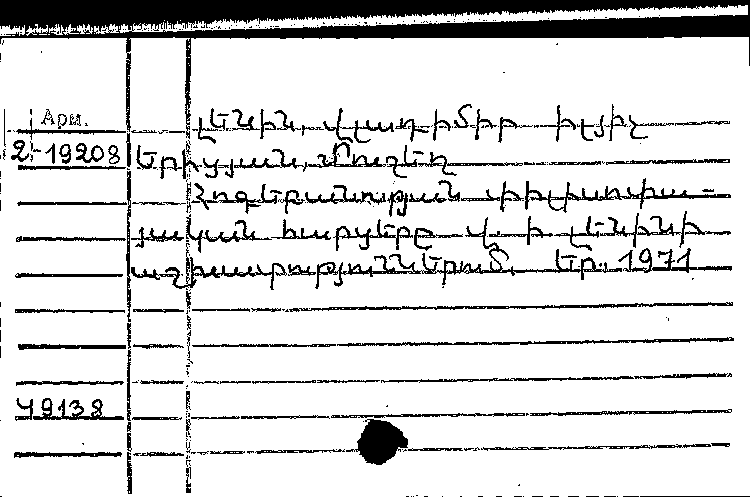 Арм.
Լենին, Վլադիմիր Իլյիչ
2-19208 Երիցյան,
Հոգեբանության փիլիսոփա-
յական հարցերը Վ. Ի. Լենինի
աշխատություններում. Եր., 1971
49138